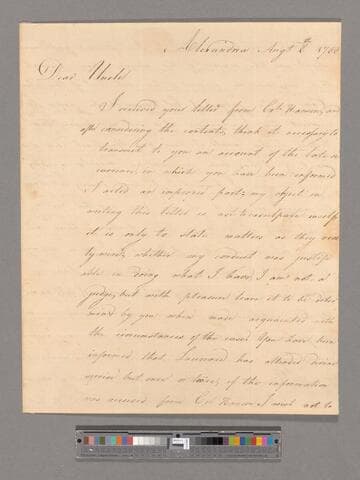 Alexandria Augt 8th 1788
Dear Uncle
I received your letter from Col. Hanson, and
after considering the contents, think it necessary to
transmit to you an account of the late oc
currence, in which you have been informed
I acted an improper part; my object in
writing this letter is not to exculpate myself
it is only to state matters as they real
ly were; whether my conduct was justifi
able in doing what I have, I am not a
judge, but with pleasure leave it to be deter
mined by you when made acquainted with
the circumstances of the case. You have been
informed that Lawrence has attended divine
service but once or twice; if the information
was received from Col. Hanson I wish not to